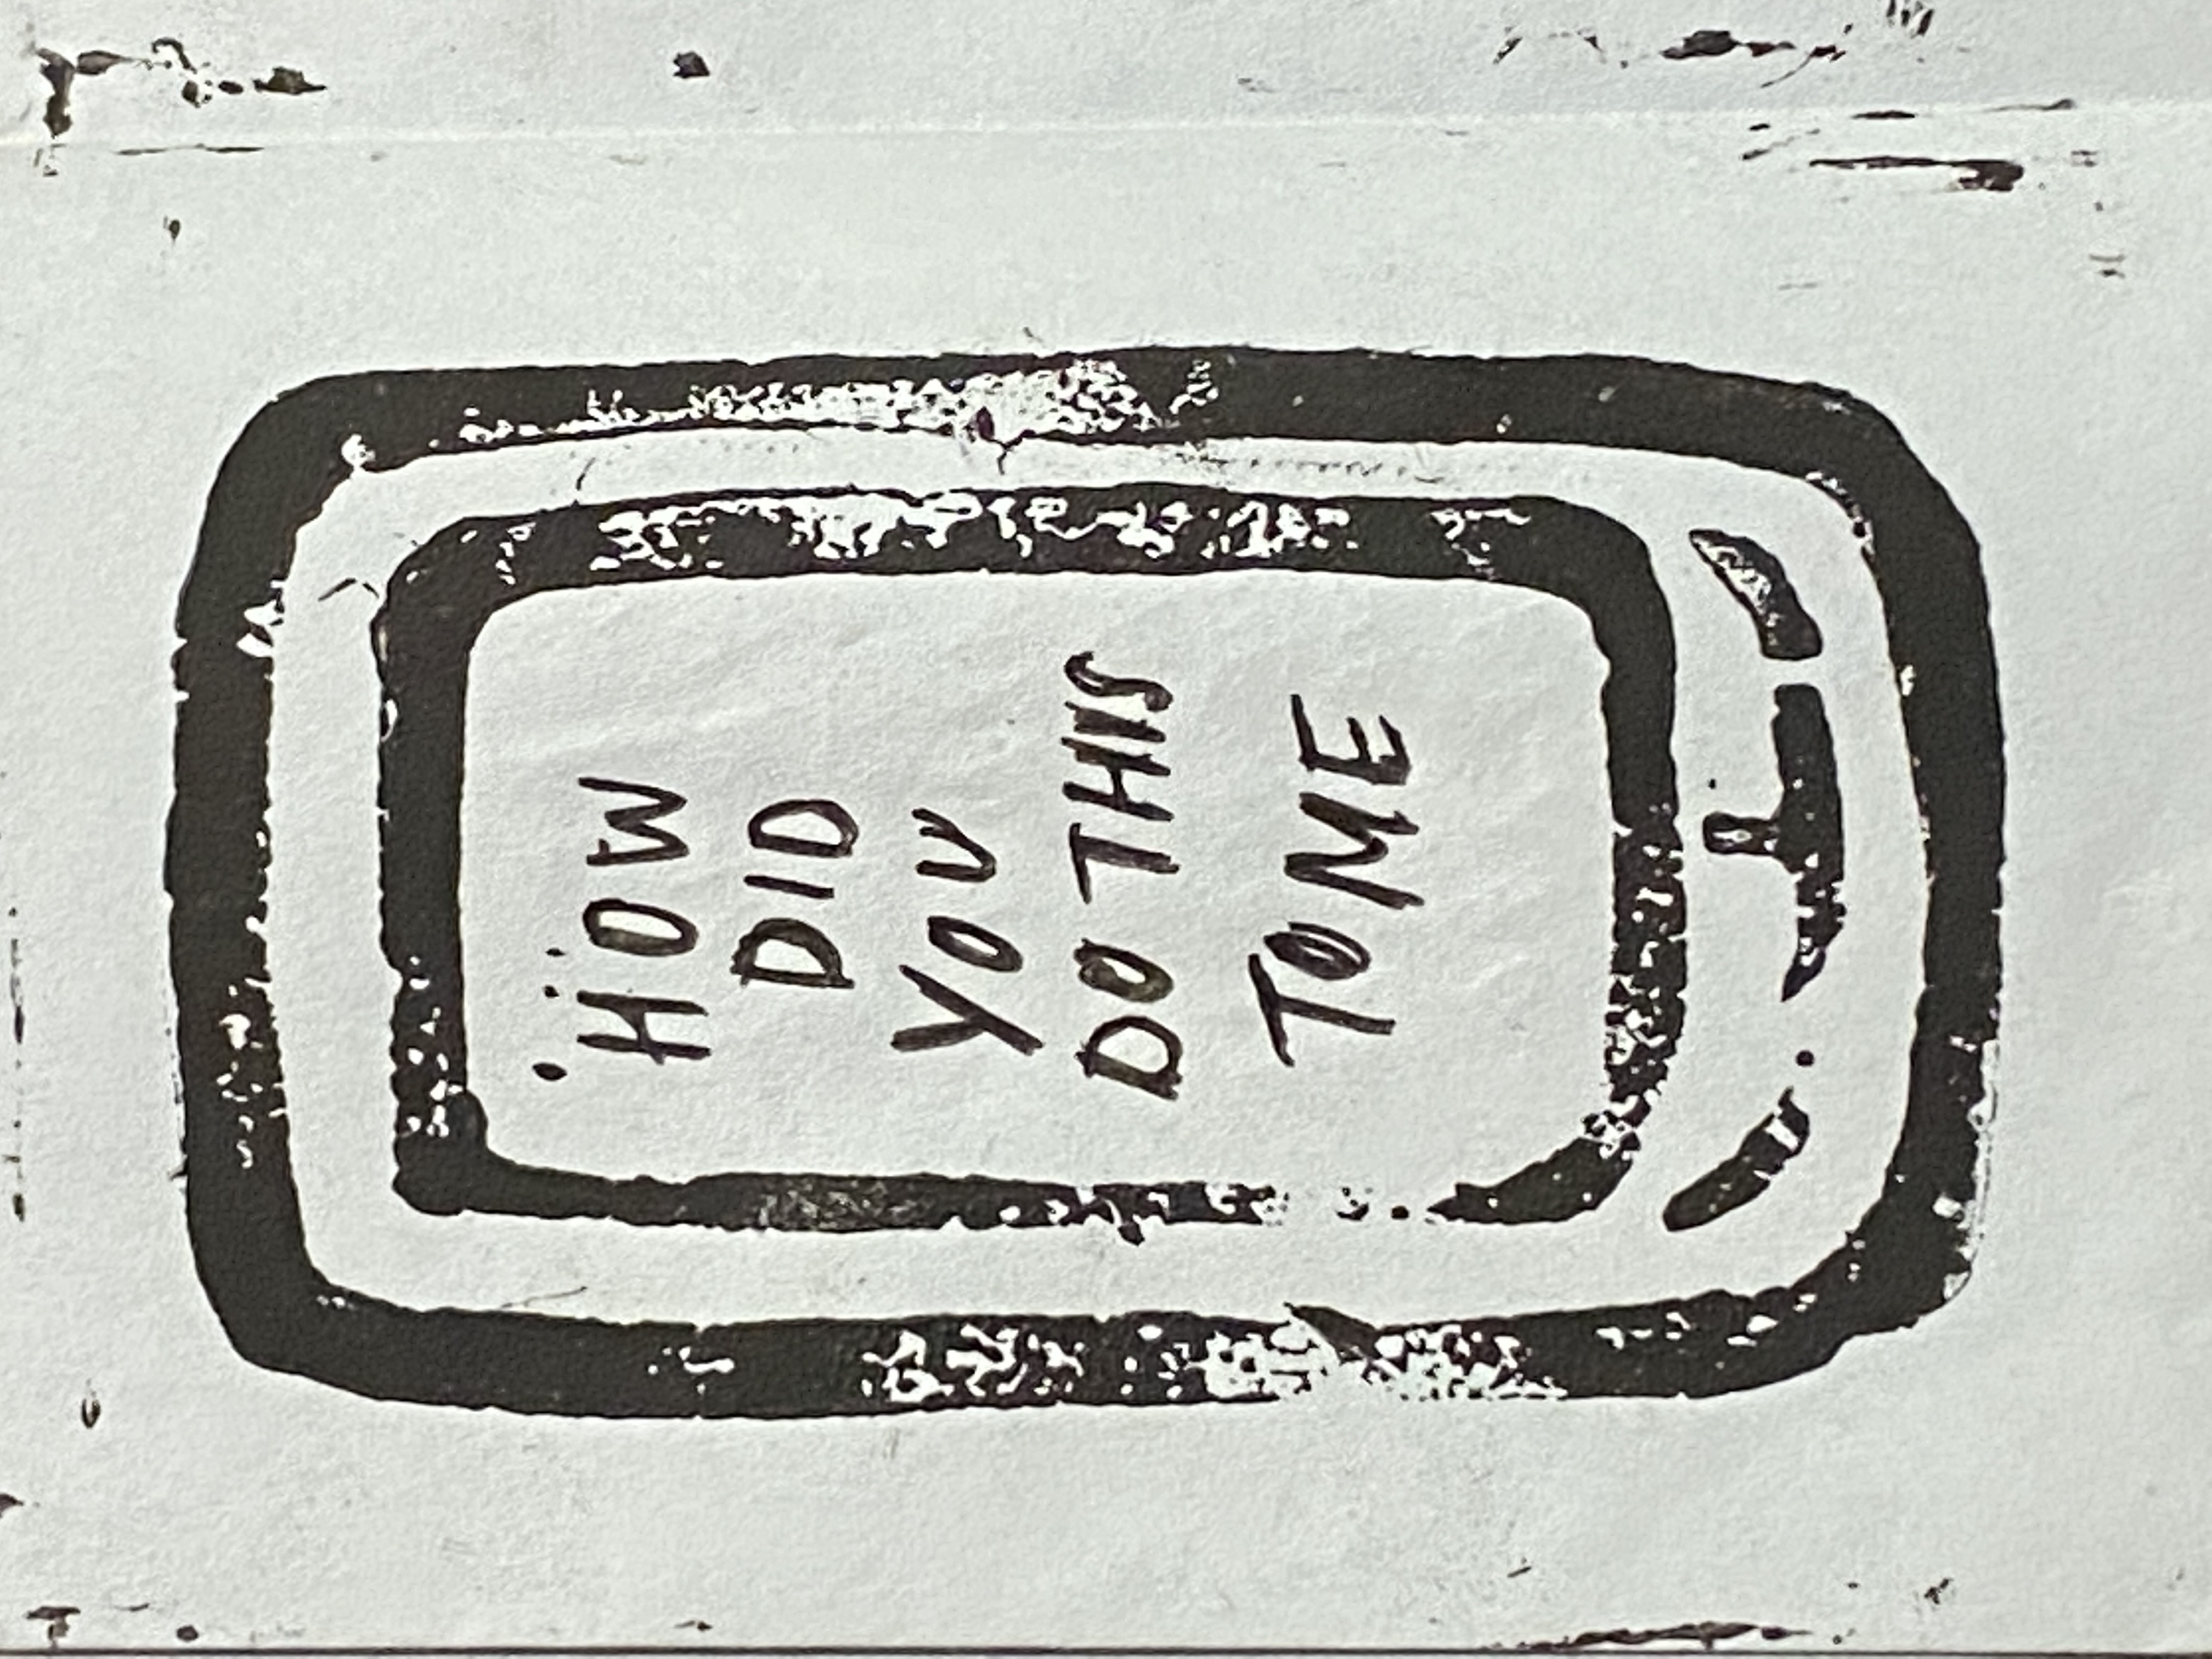 HOW
DID
YOU
DO THIS
TO ME